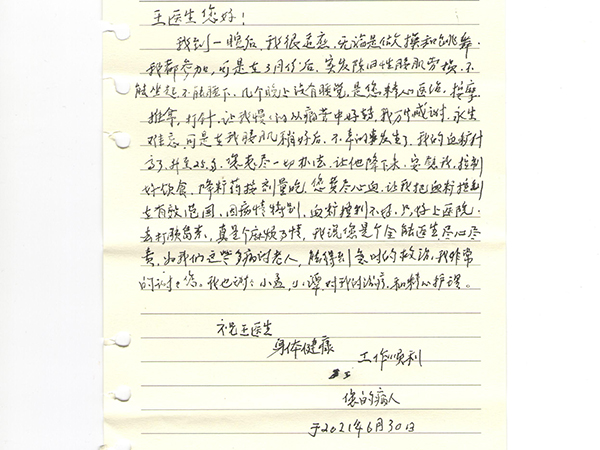 王医生您好！
我到一院后，我很适应，无论是做操和跳舞．
我都参加，可是在3月份后，突发陈旧性腰肌劳损．不
能坐起不能躺下．几个晚上没有睡觉，是您精心医治，按摩
推拿，打针．让我慢慢的从痛苦中好转，我万分感谢．永生
难忘．可是在我腰肌稍好后．不幸的事发生了．我的血糖升
高了．升至25.多．您想尽一切办法．让他降下来．安慰我．控制
好饮食．降糖药按剂量吃．您费尽心血．让我把血糖控制
在有效范围．因病情特别．血糖控制不好．只好上医院．
去打胰岛素．真是个麻烦事情，我说您是个全能医生尽心尽
责，如我们这些多病的老人，能得到及时的救治．我非常
的谢谢您．我也谢谢小孟，小谭对我的治疗和精心护理。
祝王医生
身体健康
工作顺利
您的病人
于2021年6月30日